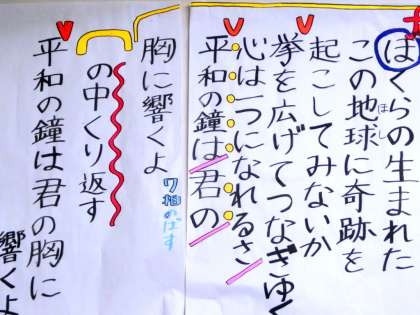 ぼくらの生まれた
この地球に奇跡を
ほし
起こしてみないか
拳を広げてつなぎゆく
心は一つになれるさ
平和の鐘は君の
胸に響くよ
7拍のばす
の中くり返す
平和の鐘は君の胸に
響くよ